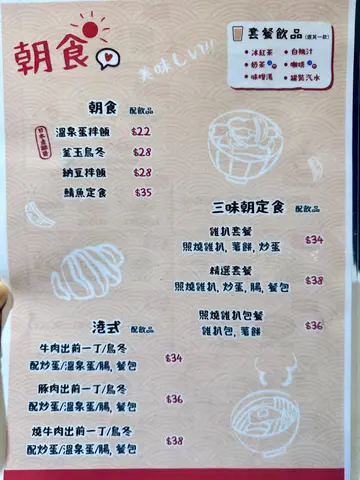 朝食
美味しい!!!
套餐飲品 (選其一款)
• 冰紅茶 • 白桃汁
• 奶茶 • 咖啡
• 味噌湯 • 罐裝汽水
朝食 配飲品
溫泉蛋拌飯 $22
釜玉烏冬 $28
納豆拌飯 $28
鯖魚定食 $35
三味朝定食 配飲品
雞扒套餐
照燒雞扒, 薯餅, 炒蛋 $34
精選套餐
照燒雞扒, 炒蛋, 腸, 餐包 $38
照燒雞扒餐包
雞扒包, 薯餅 $36
港式 配飲品
牛肉出前一丁/烏冬
配炒蛋/溫泉蛋/腸, 餐包 $34
豚肉出前一丁/烏冬
配炒蛋/溫泉蛋/腸, 餐包 $36
燒牛肉出前一丁/烏冬
配炒蛋/溫泉蛋/腸, 餐包 $38